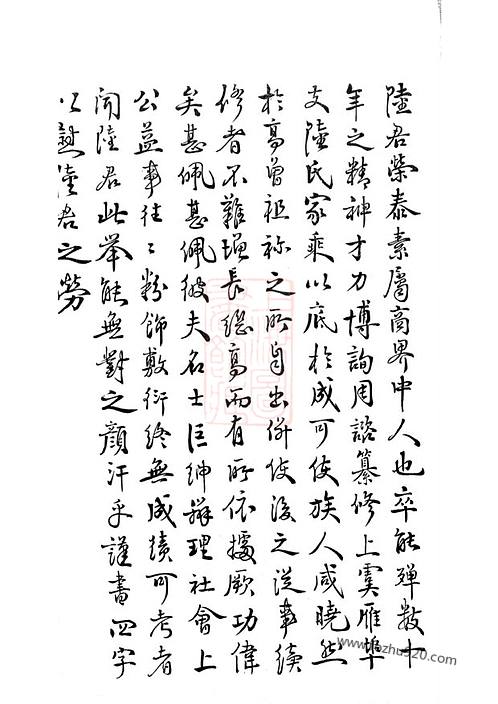 陸君榮泰素屬商界中人也卒能殫數十
年之精神才力博詢周諮纂修上虞雁埠
支陸氏家乘以底於成可使族人咸曉然
於高曾祖祢之所自出併使後之從事續
修者不難增長繼高而有所依據厥功偉
矣甚佩甚佩彼夫名士巨紳辦理社會上
公益事往〻粉飾敷衍終無成績可考者
聞陸君此举能無對之顏汗乎謹書四字
以慰陸君之勞
www.jiazhu520.com